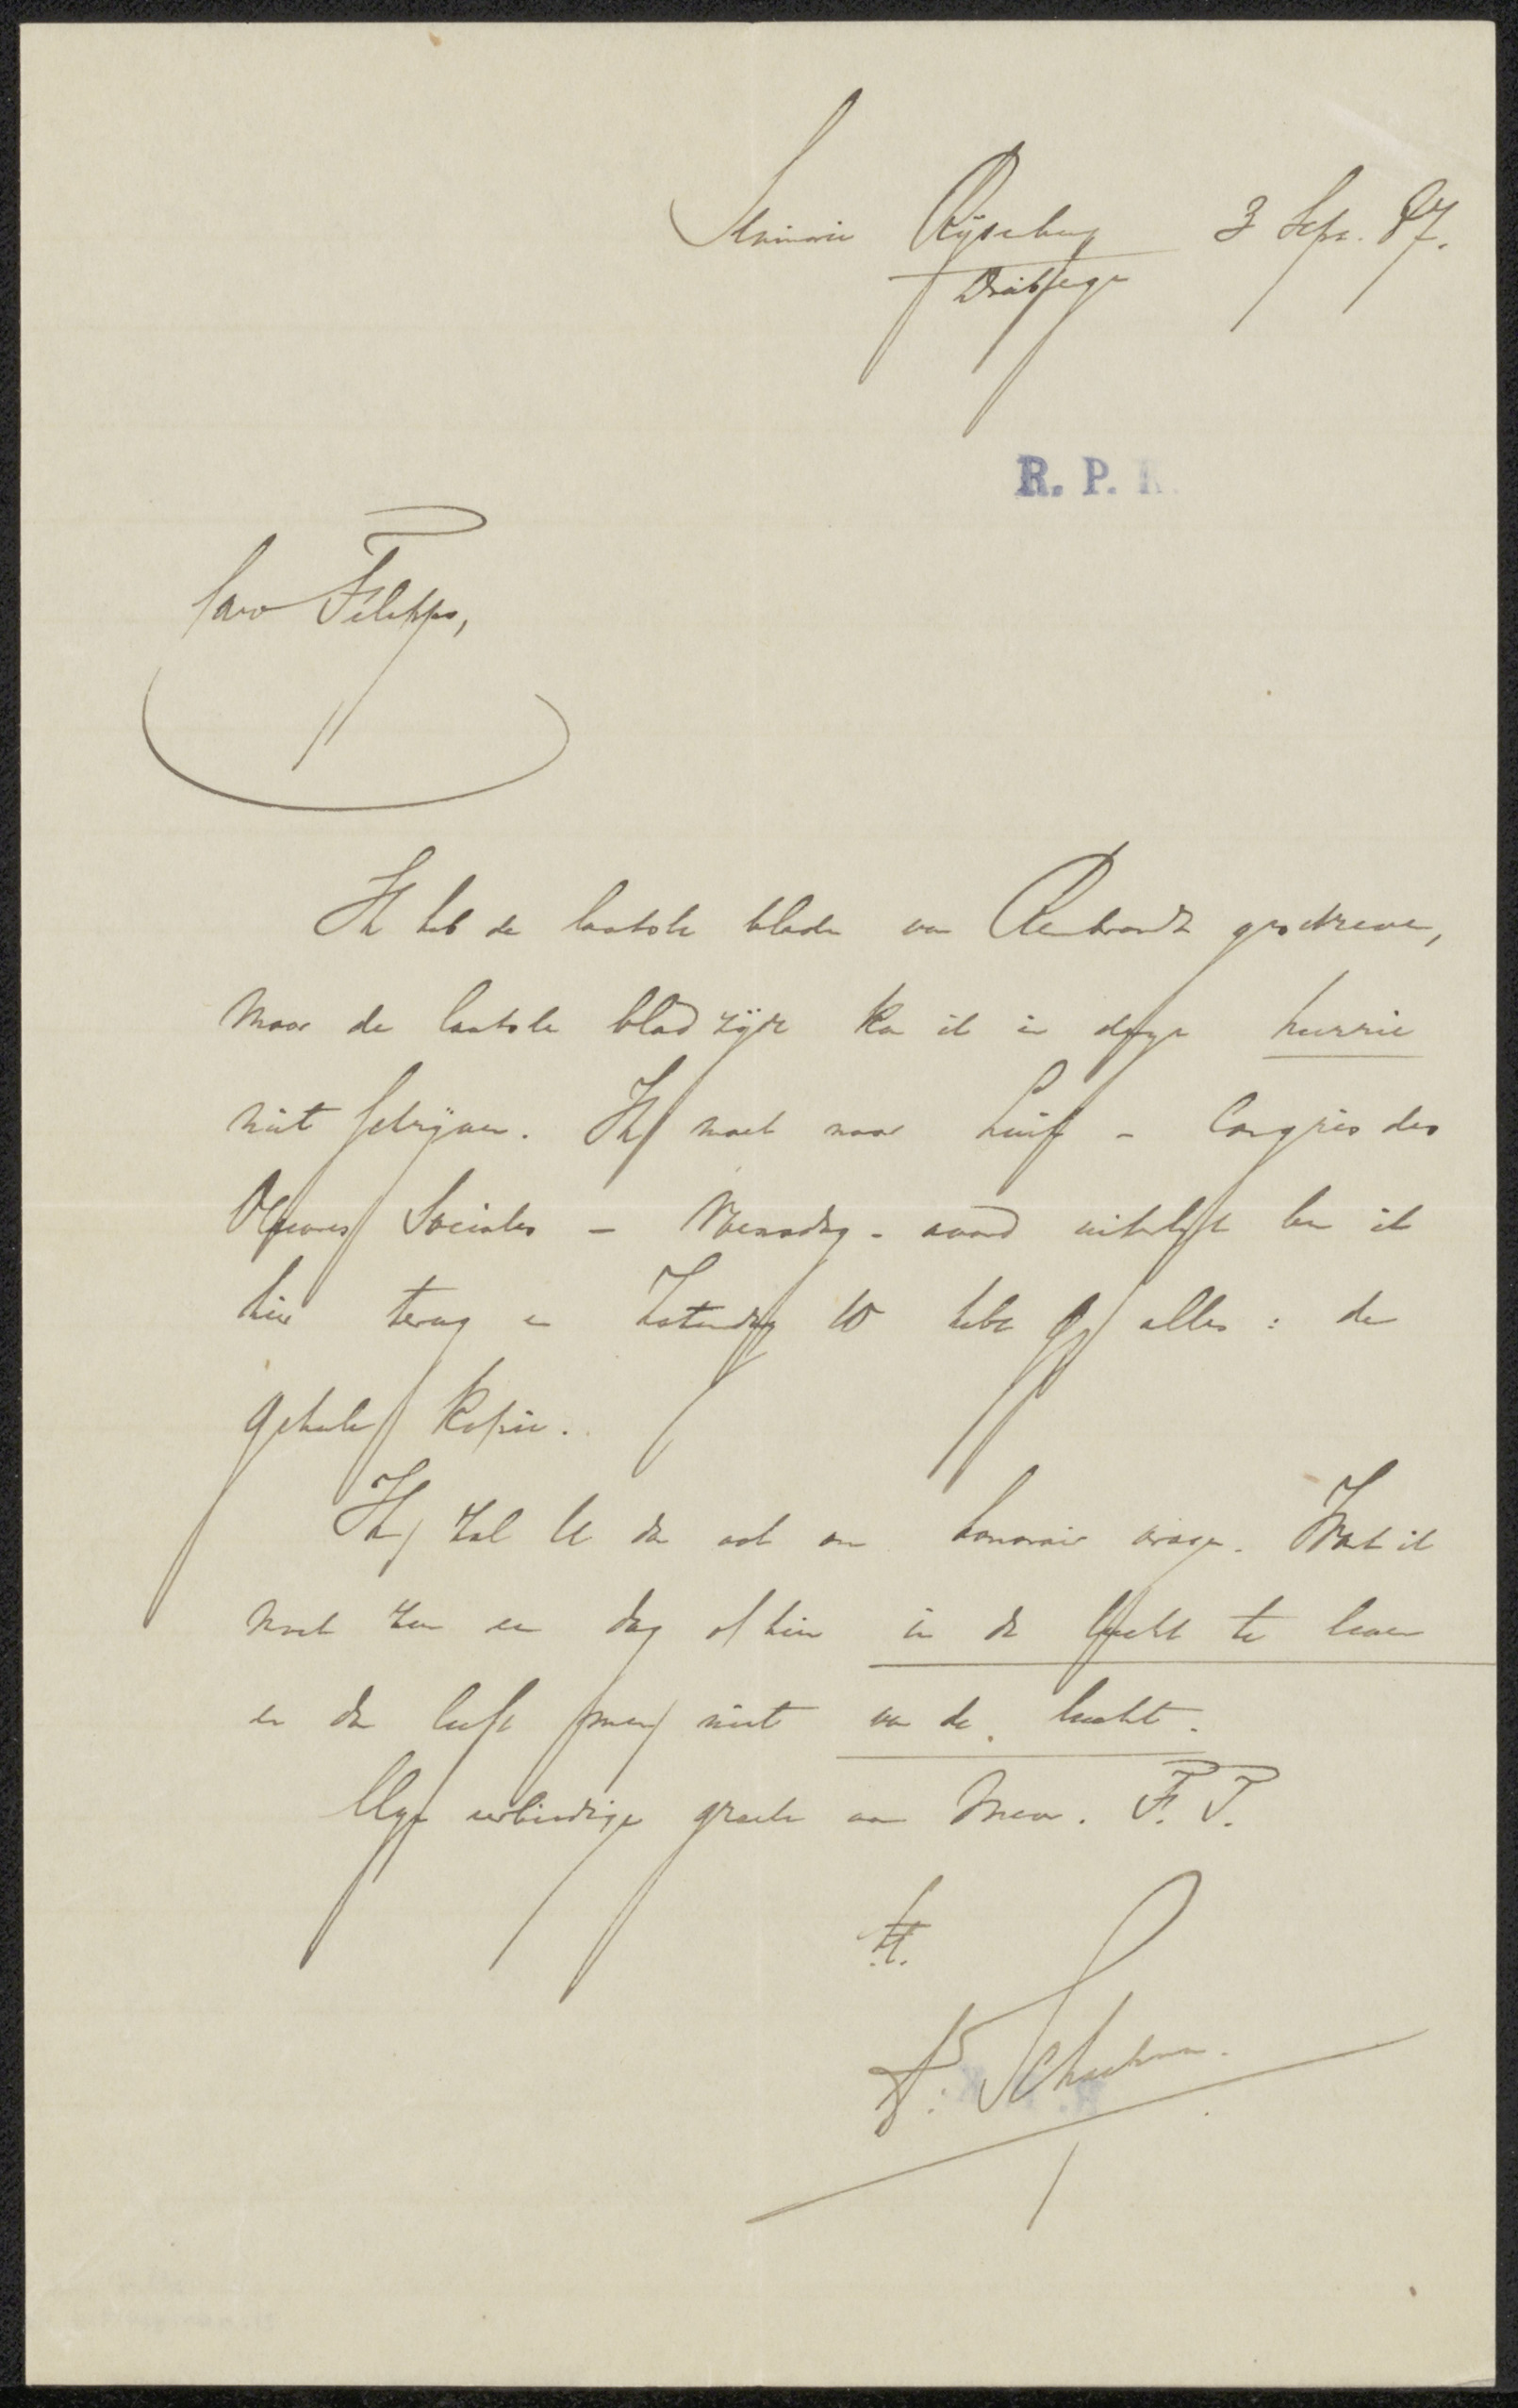 Seminarie Rijsenburg 3 Sept. 87.
Driebergen
R. P. K.
Caro Filippo,
Ik heb de laatste bladen van Rembrandt geschreven,
Maar de laatste bladzijde kan ik in deze heerrie
niet schrijven. Ik moet naar Luik – Congrès des
Oeuvres Sociales – Woensdag-avond uiterlijk ben ik
hier terug en Zaterdag 10 hebt gij alles : de
geheele kopie.
Ik zal U dan ook om honorair vragen. Want ik
moet een dag of tien in de lucht te leven
en dan leeft men niet van de lucht.
Mijn eerbiedige groete aan Mevr. F. T.
tt.
Schaepman.